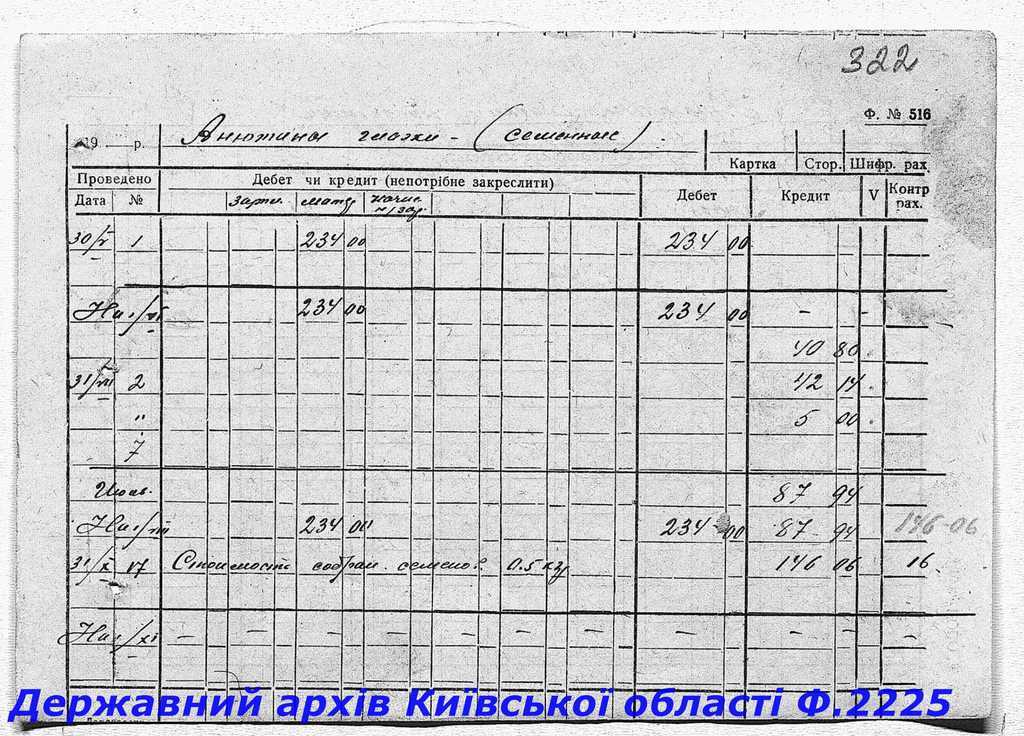 322
Ф. № 516
19 р. Анютины глазки - (семенные).
Картка Стор. Шифр. рах.
Проведено Дебет чи кредит (непотрібне закреслити) Дебет Кредит V Контр рах.
Дата № зарпл. мат.
30/V 1 234 00 234 00
На 1/VI 234 00 234 00 - -
40 80
31/VII 2 42 14
" 5 00
7
Июль. 87 94
На 1/VIII 234 00 234-00 87-94 146-06
31/X 17 Стоимость собран. семенов. 0.5 кг 146 06 16
На 1/XI - - - - - - - - - -
Державний архів Київської області Ф.2225